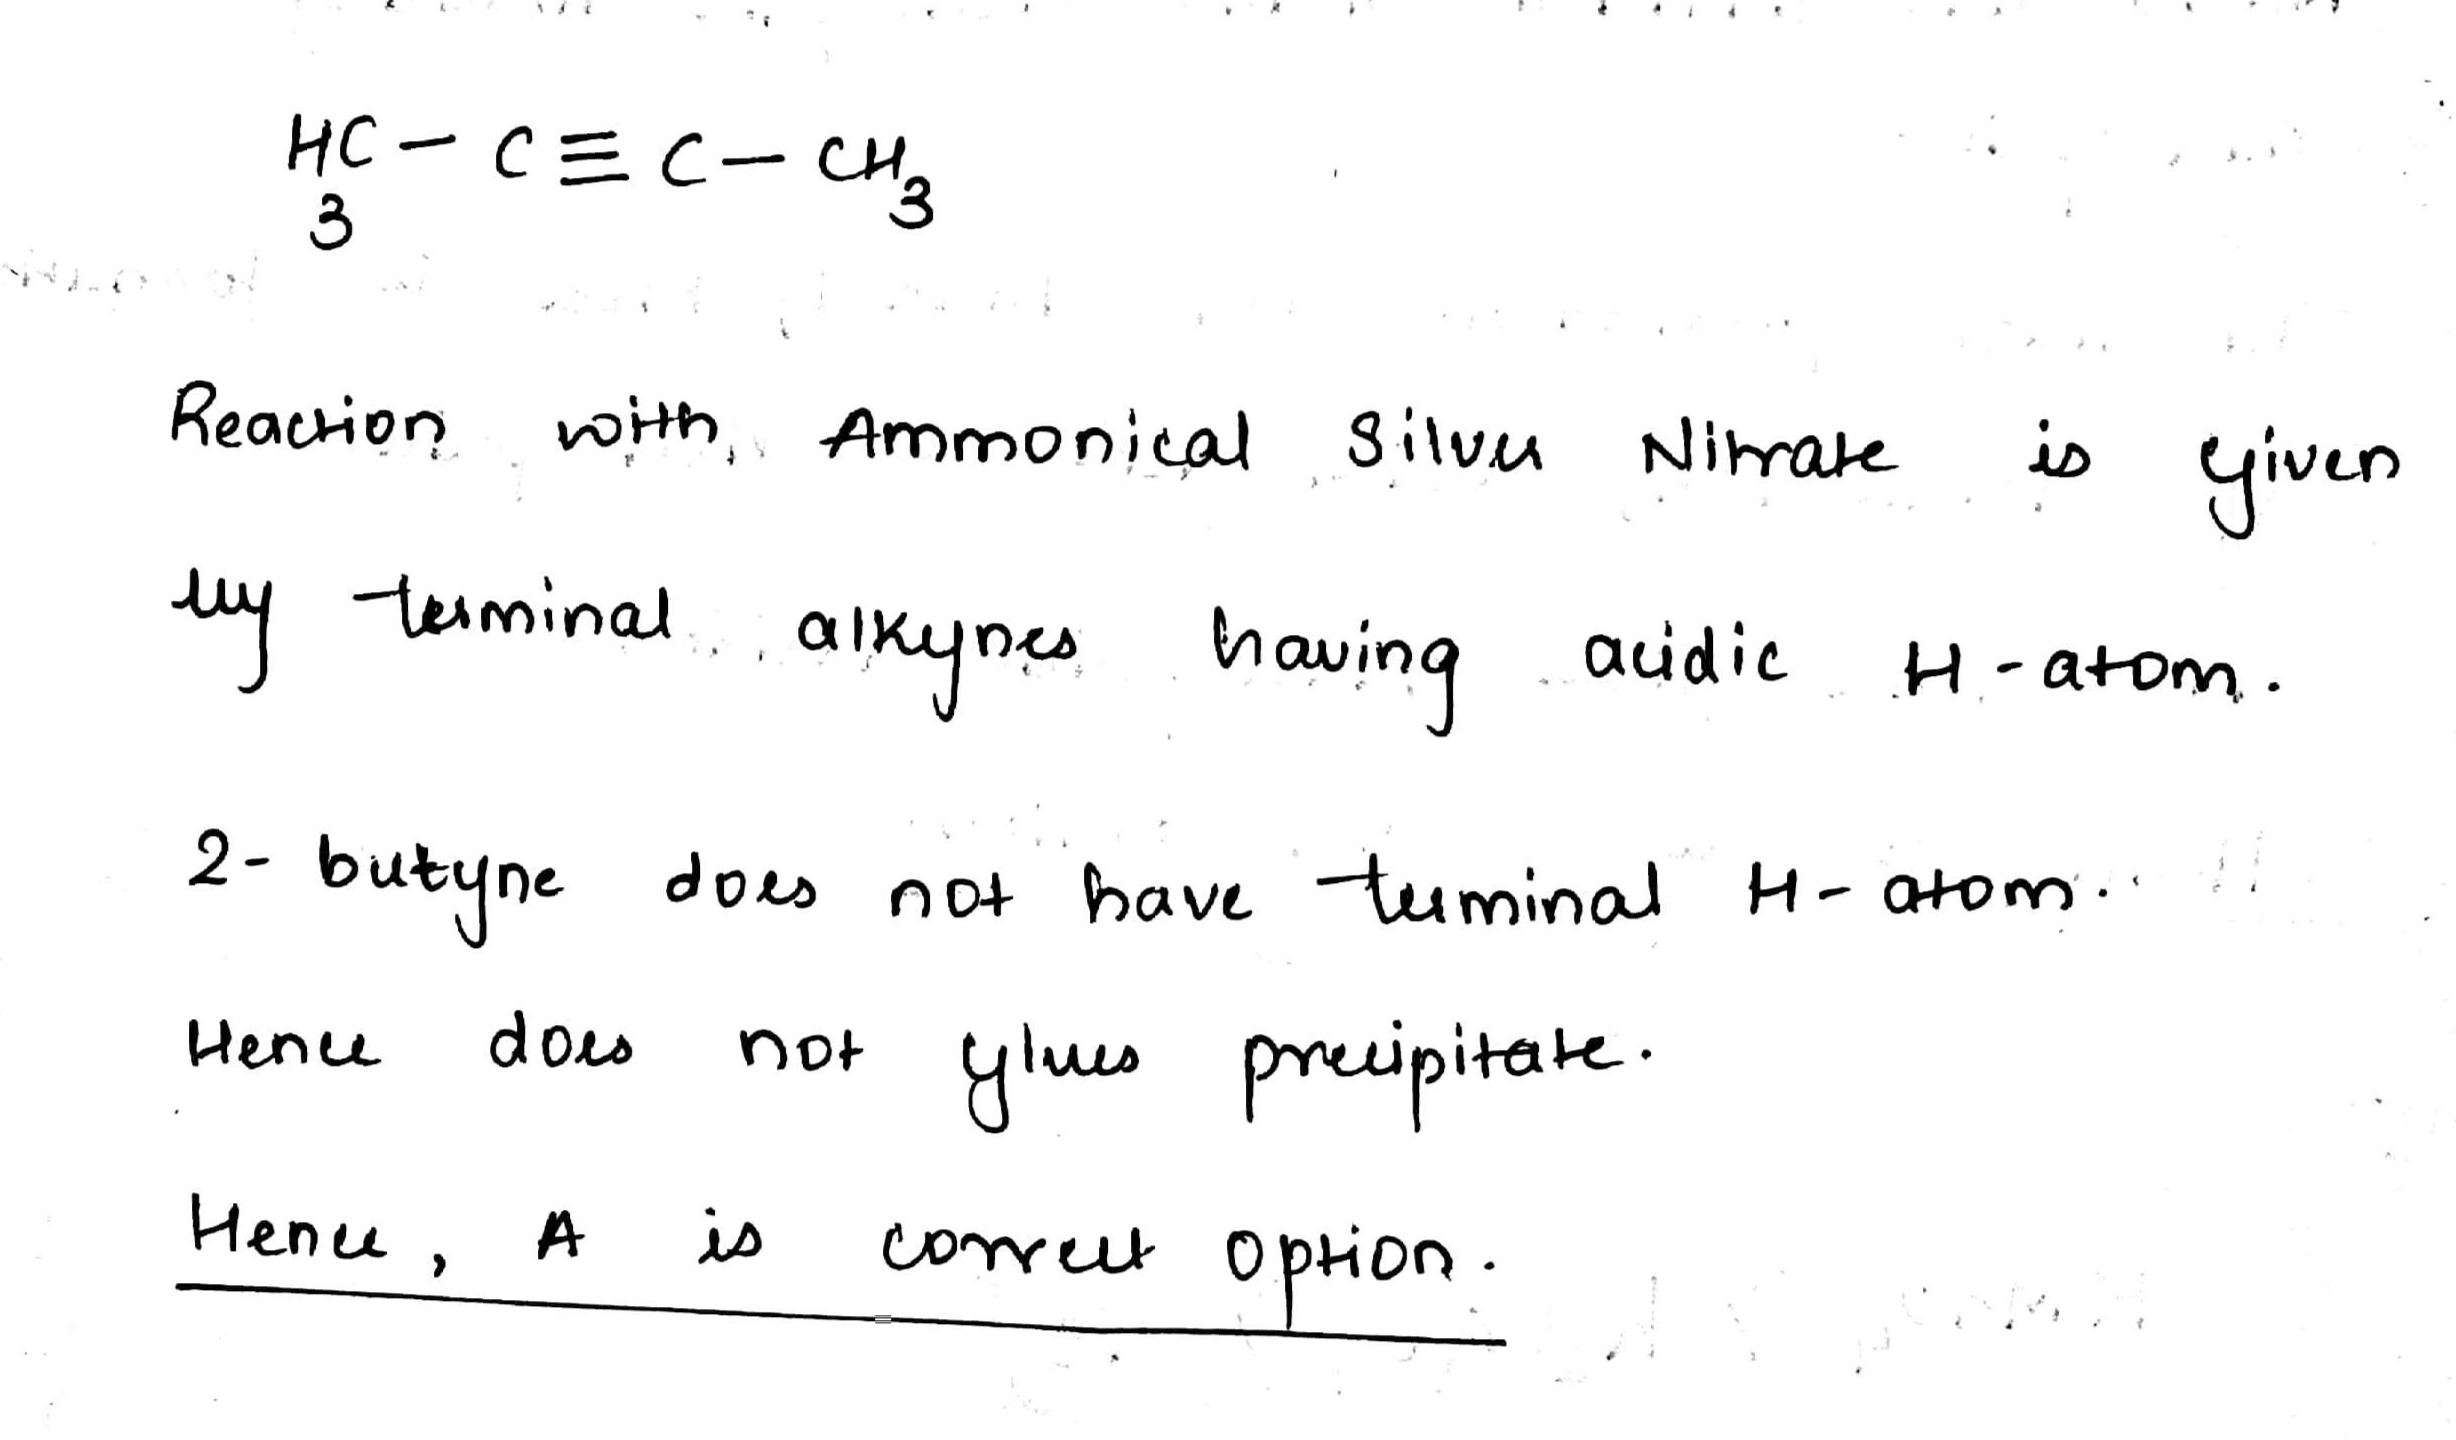 H₃C - C ≡ C - CH₃
Reaction with Ammonical Silver Nitrate is given
by terminal alkynes having acidic H-atom.
2-butyne does not have terminal H-atom.
Hence does not gives precipitate.
Hence, A is correct option.